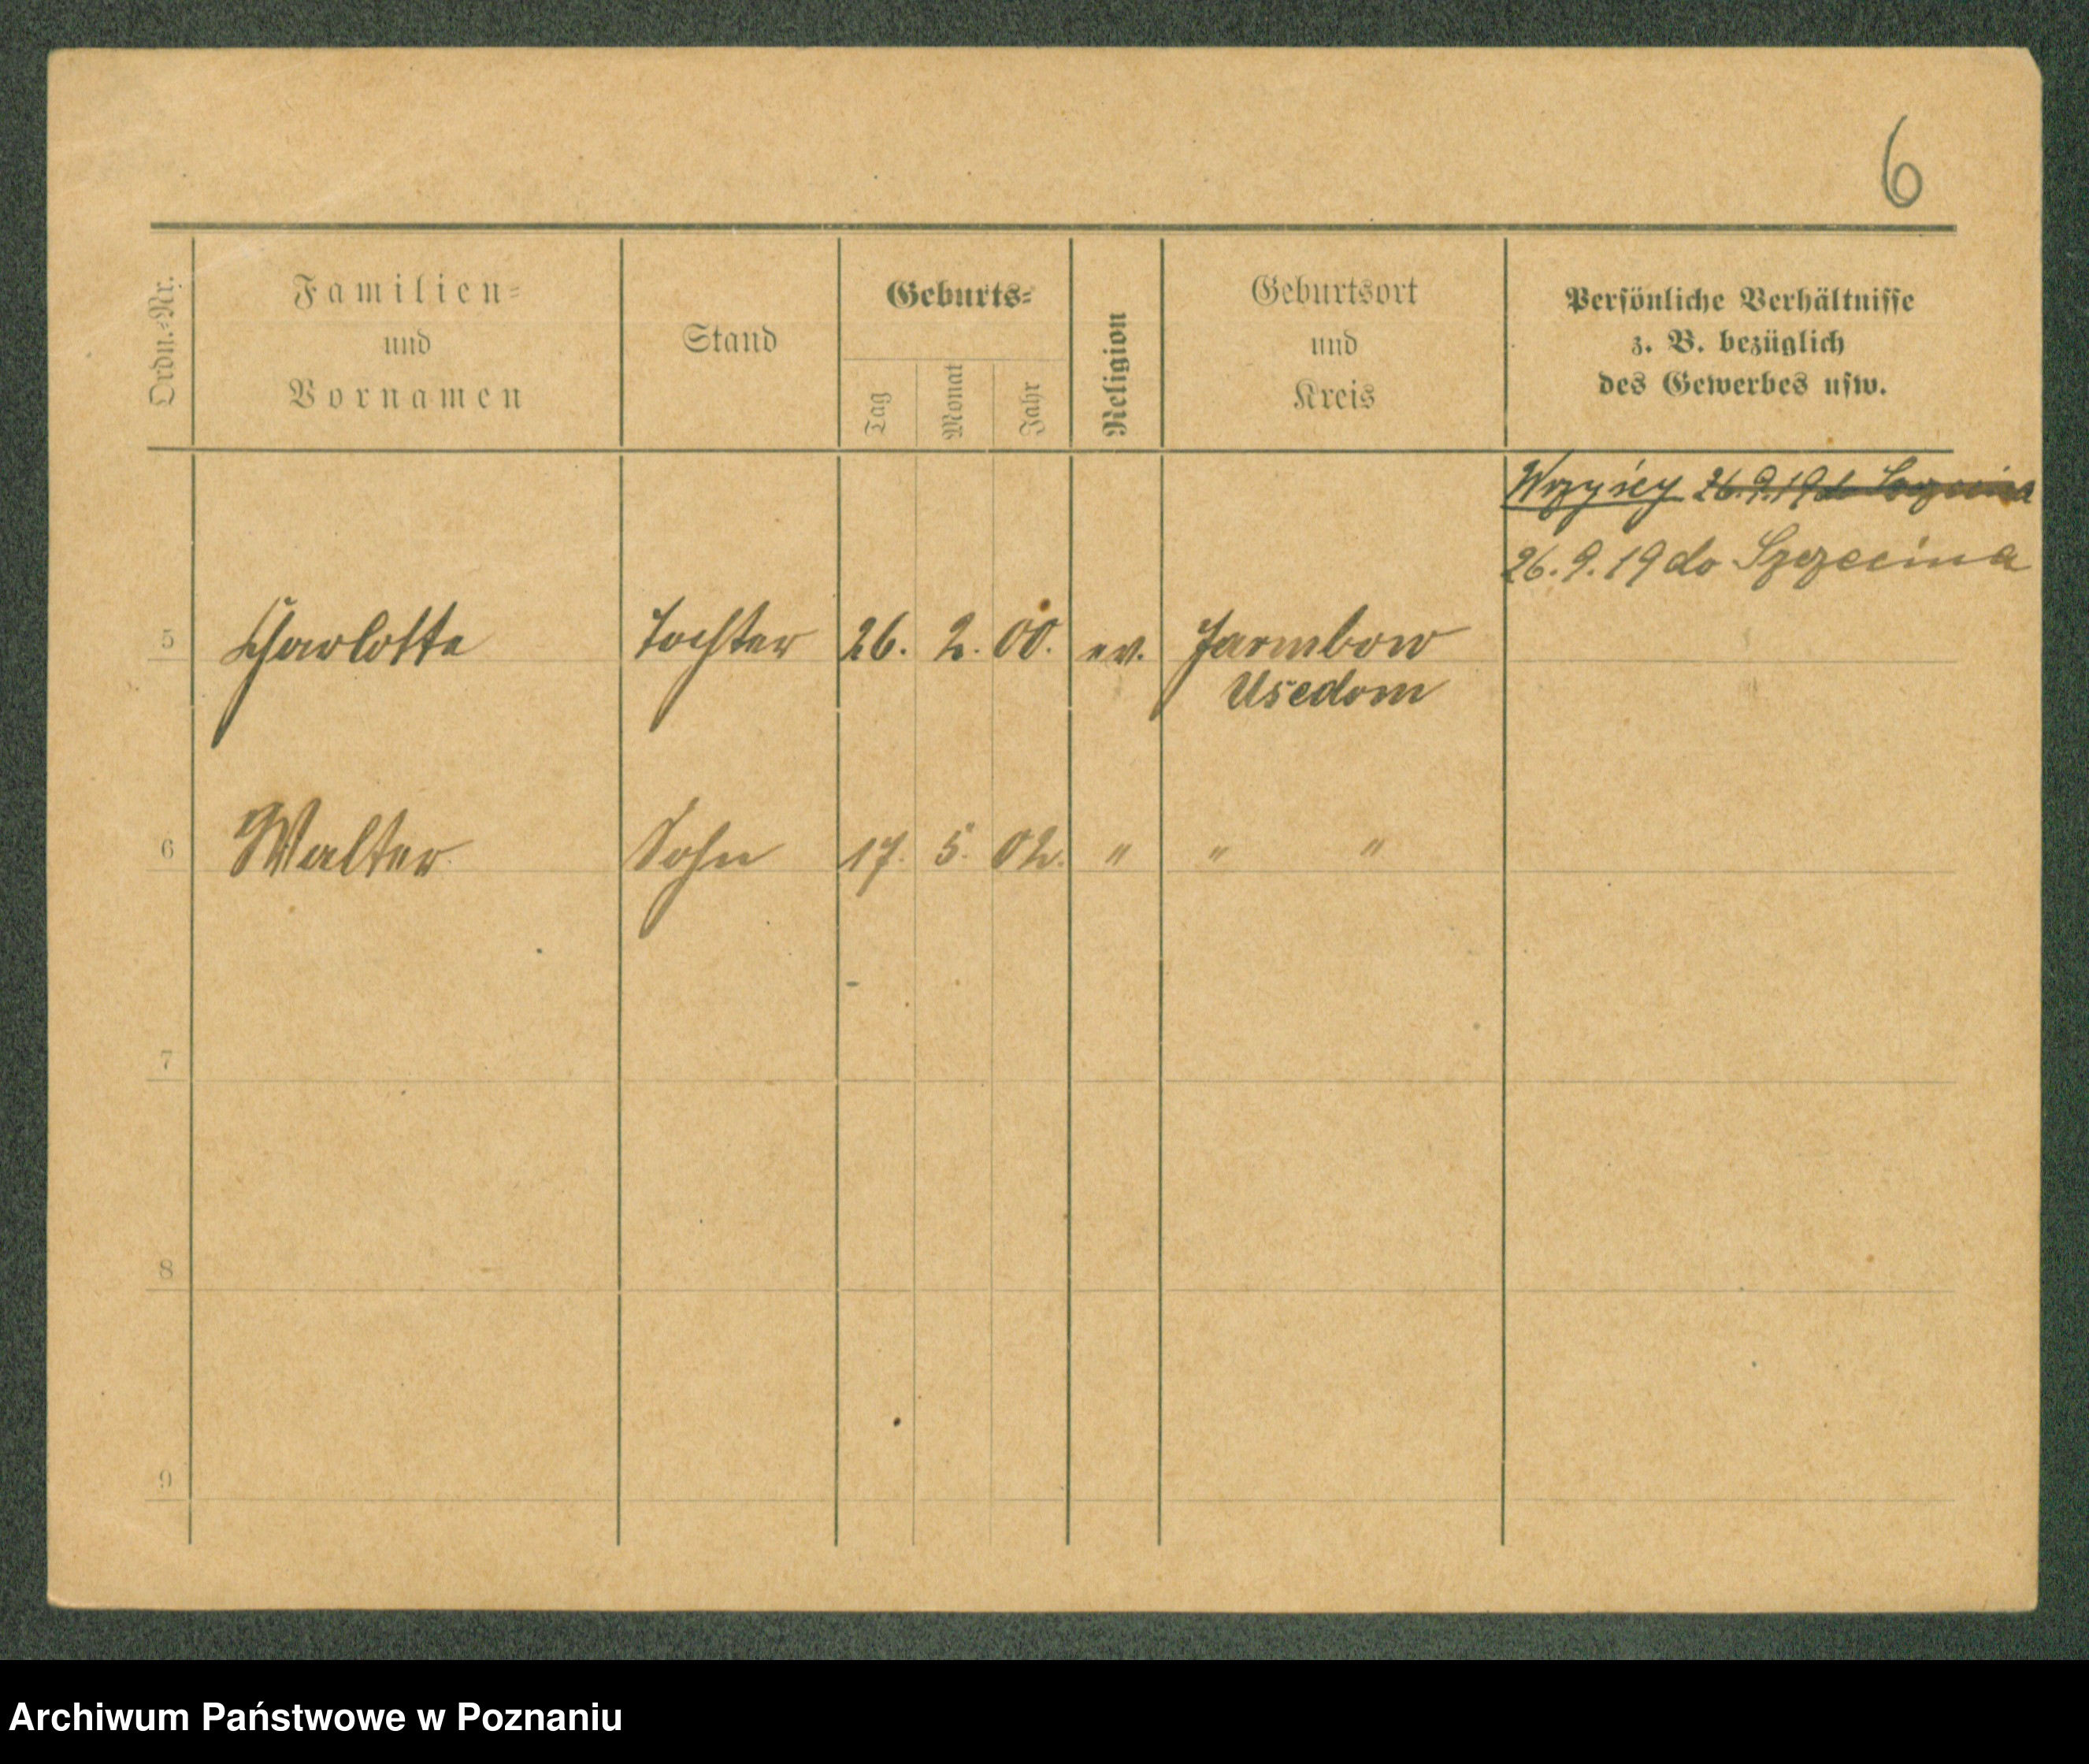 6
Ordn.-Nr.
Familien-
und
Vornamen
Stand
Geburts-
Tag
Monat
Jahr
Religion
Geburtsort
und
Kreis
Persönliche Verhältnisse
z. B. bezüglich
des Gewerbes usw.
Wszyscy 26.9.19 do
26.9.19 do Szczecina
5 Charlotte Tochter 26. 2. 00. ev. Jarmbow
Usedom
6 Walter Sohn 17. 5. 02. " " "
7
8
9
Archiwum Państwowe w Poznaniu